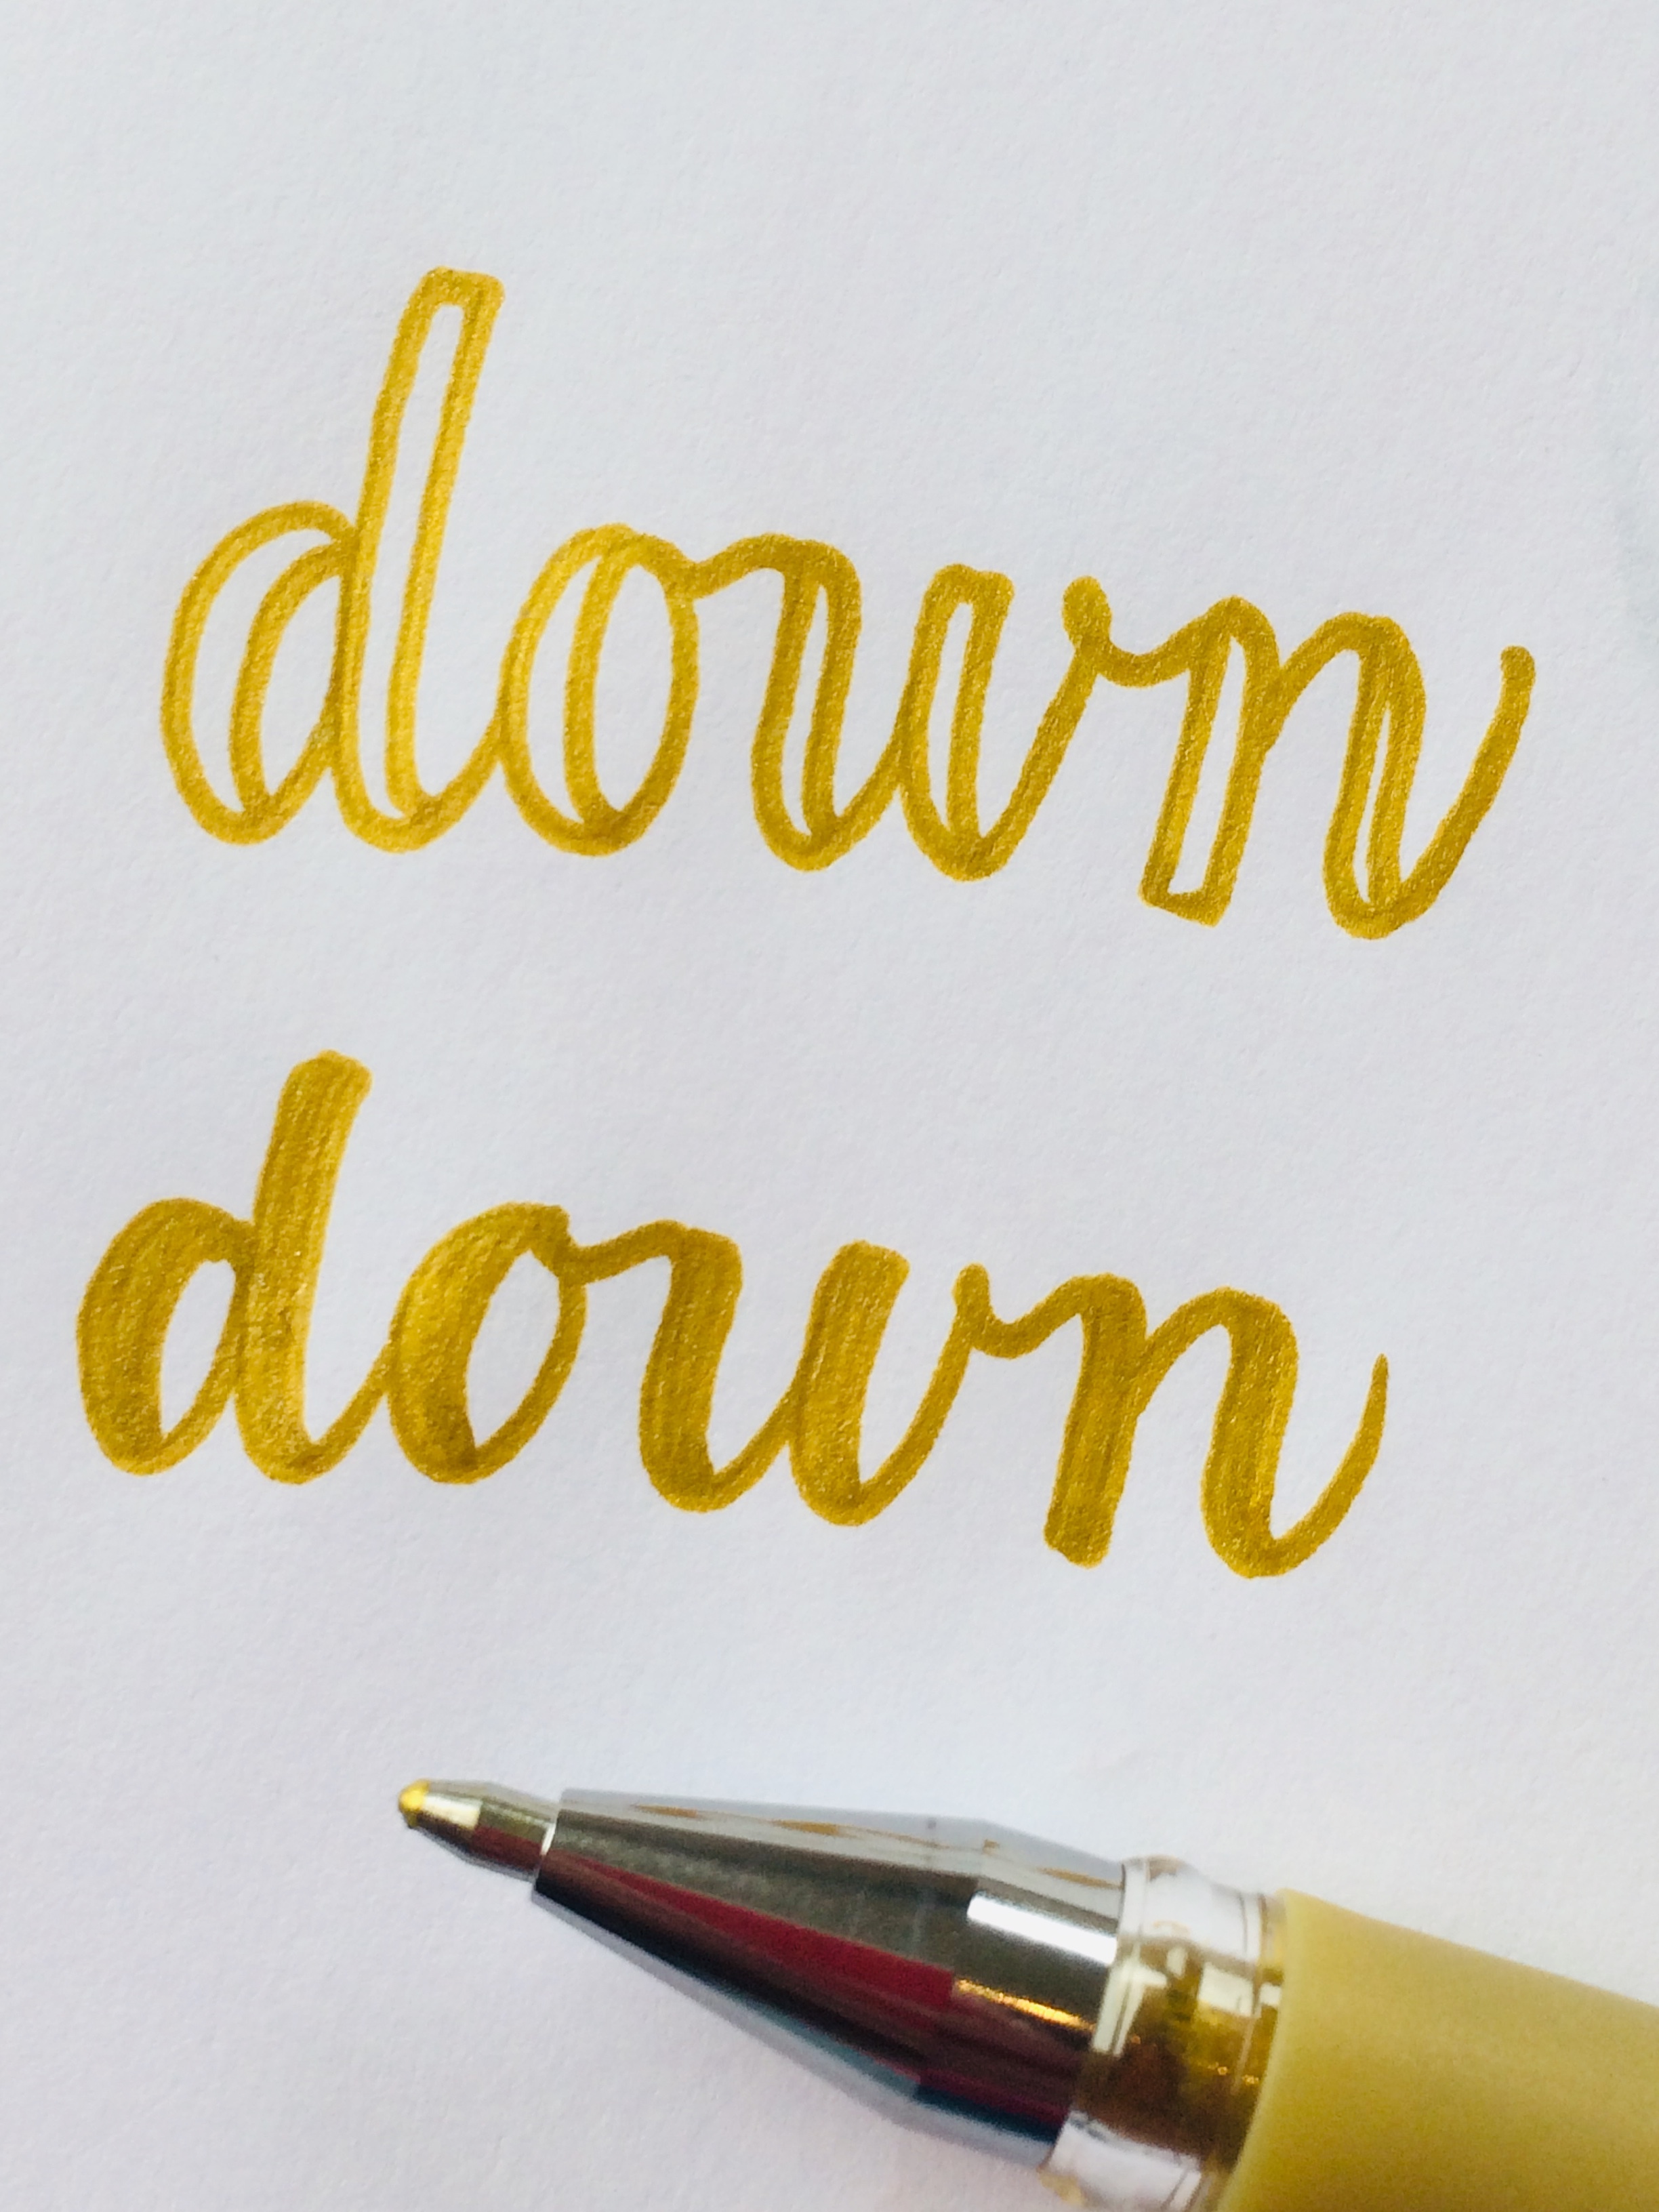 down
down